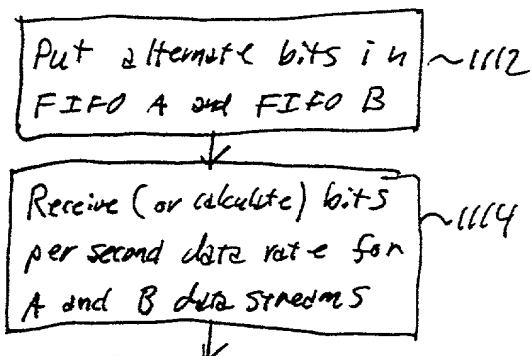 Put alternate bits in
FIFO A and FIFO B
~1112
Receive (or calculate) bits
per second data rate for
A and B data streams
~1114